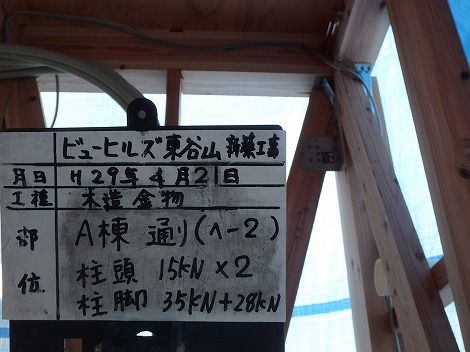 ビューヒルズ東谷山 新築工事
月日 H29年4月21日
工種 木造金物
部位 A棟 通り(ヘ-2)
柱頭 15kN×2
柱脚 35kN+28kN